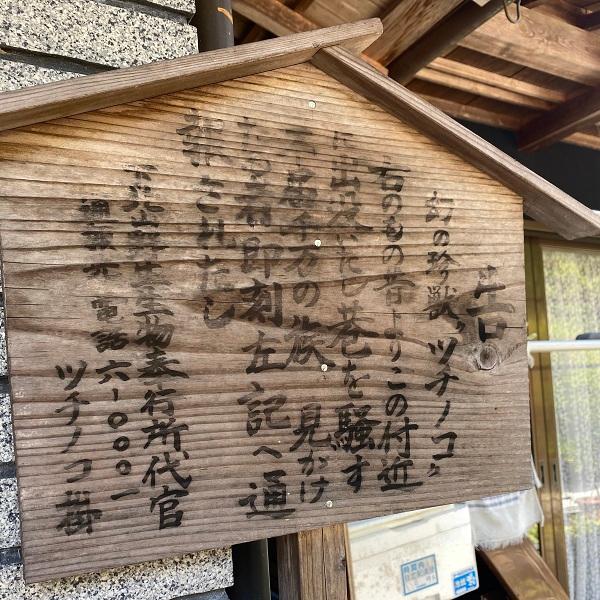 告
幻の珍獣〝ツチノコ〟
右のもの昔よりこの付近
に出没いたし巷を騒す
不届千万の族 見かけ
たる者即刻左記へ通
報されたし
下北山野生生物奉行所代官
通報先 電話六-〇〇〇一
ツチノコ掛